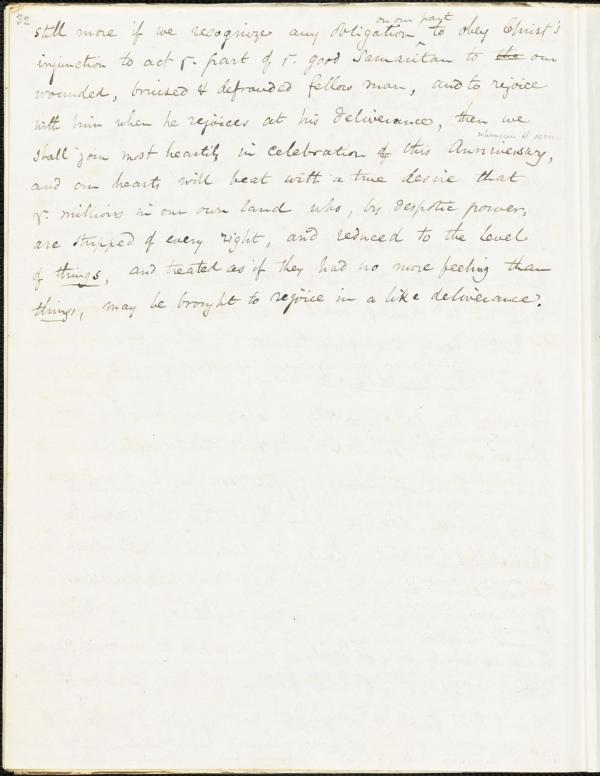 32
on our part
still more if we recognize any obligation ^ to obey Christ's
injunction to act yᵉ part of yᵉ good Samaritan to the our
wounded, bruised & defrauded fellow man, and to rejoice
with him when he rejoices at his deliverance, then we
whenever it occurs
shall join most heartily in celebration of this Anniversary,
and our hearts will beat with a true desire that
yᵉ millions in our own land who, by despotic power,
are stripped of every right, and reduced to the level
of things, and treated as if they had no more feeling than
things, may be brought to rejoice in a like deliverance.